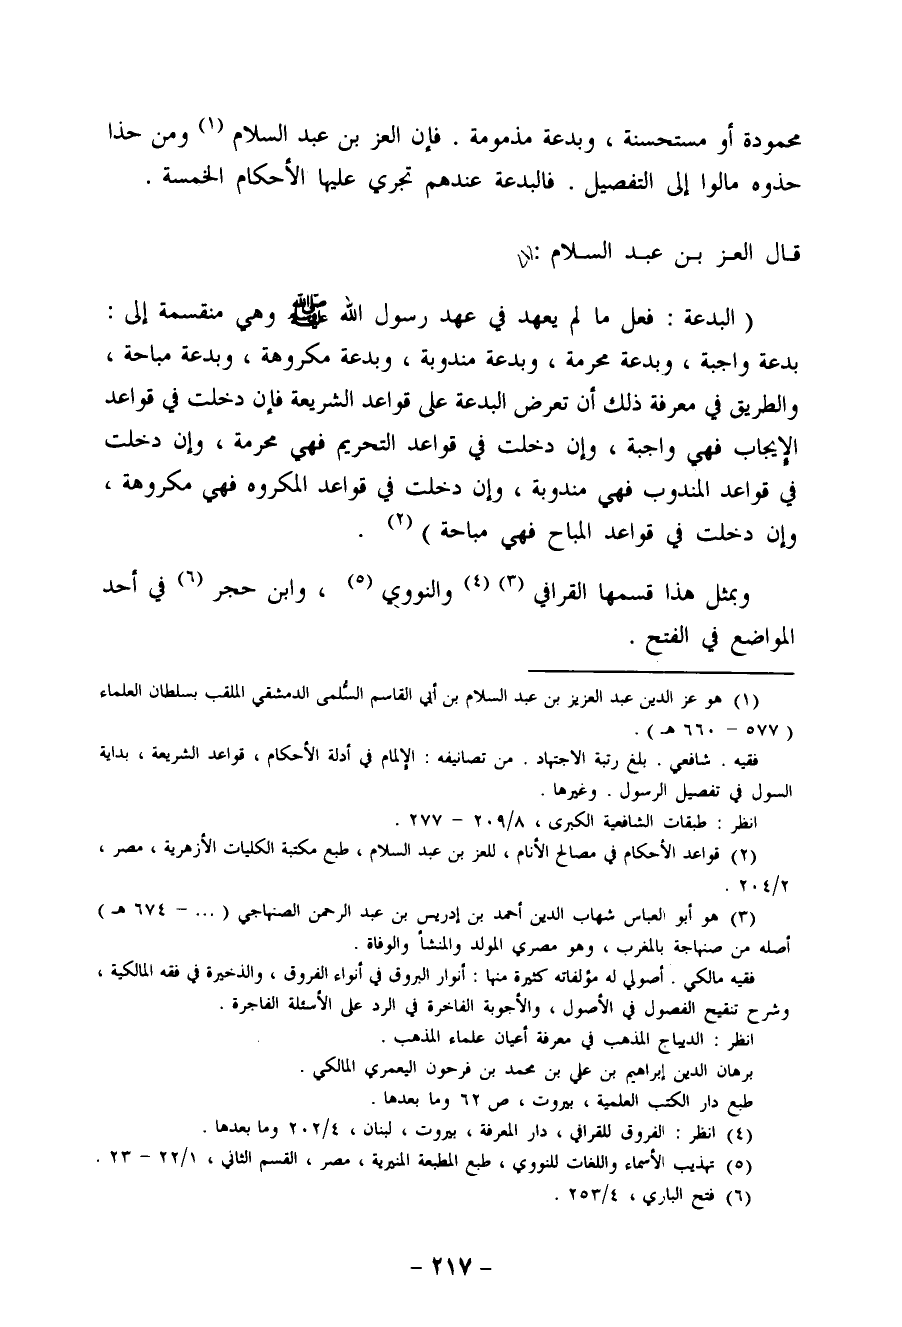 محمودة أو مستحسنة ، وبدعة مذمومة . فإن العز بن عبد السلام (١) ومن حذا
حذوه مالوا إلى التفصيل . فالبدعة عندهم تجري عليها الأحكام الخمسة .
قال العز بن عبد السلام :
( البدعة : فعل ما لم يعهد في عهد رسول الله ﷺ وهي منقسمة إلى :
بدعة واجبة ، وبدعة محرمة ، وبدعة مندوبة ، وبدعة مكروهة ، وبدعة مباحة ،
والطريق في معرفة ذلك أن تعرض البدعة على قواعد الشريعة فإن دخلت في قواعد
الإيجاب فهي واجبة ، وإن دخلت في قواعد التحريم فهي محرمة ، وإن دخلت
في قواعد المندوب فهي مندوبة ، وإن دخلت في قواعد المكروه فهي مكروهة ،
وإن دخلت في قواعد المباح فهي مباحة ) (٢) .
وبمثل هذا قسمها القرافي (٣) (٤) والنووي (٥) ، وابن حجر (٦) في أحد
المواضع في الفتح .
(١) هو عز الدين عبد العزيز بن عبد السلام بن أبي القاسم السُّلمى الدمشقي الملقب بسلطان العلماء
( ٥٧٧ – ٦٦٠ هـ ) .
فقيه . شافعي . بلغ رتبة الاجتهاد . من تصانيفه : الإلمام في أدلة الأحكام ، قواعد الشريعة ، بداية
السول في تفصيل الرسول . وغيرها .
انظر : طبقات الشافعية الكبرى ، ٢٠٩/٨ – ٢٧٧ .
(٢) قواعد الأحكام في مصالح الأنام ، للعز بن عبد السلام ، طبع مكتبة الكليات الأزهرية ، مصر ،
٢٠٤/٢ .
(٣) هو أبو العباس شهاب الدين أحمد بن إدريس بن عبد الرحمن الصنهاجي ( ... – ٦٧٤ هـ )
أصله من صنهاجة بالمغرب ، وهو مصري المولد والمنشأ والوفاة .
فقيه مالكي . أصولي له مؤلفاته كثيرة منها : أنوار البروق في أنواء الفروق ، والذخيرة في فقه المالكية ،
وشرح تنقيح الفصول في الأصول ، والأجوبة الفاخرة في الرد على الأسئلة الفاجرة .
انظر : الديباج المذهب في معرفة أعيان علماء المذهب .
برهان الدين إبراهيم بن علي بن محمد بن فرحون اليعمري المالكي .
طبع دار الكتب العلمية ، بيروت ، ص ٦٢ وما بعدها .
(٤) انظر : الفروق للقرافي ، دار المعرفة ، بيروت ، لبنان ، ٢٠٢/٤ وما بعدها .
(٥) تهذيب الأسماء واللغات للنووي ، طبع المطبعة المنيرية ، مصر ، القسم الثاني ، ٢٢/١ – ٢٣ .
(٦) فتح الباري ، ٢٥٣/٤ .
- ٢١٧ -